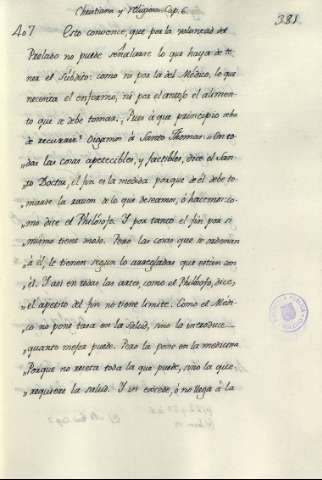 Christiana y Religiosa. Cap. 6.
381
407 Esto convence, que por la voluntad del
Prelado no puede señalarse lo que haya de te-
ner el Subdito: como ni por la del Médico, lo que
necesita el enfermo, ni por el antojo el alimen-
to que se debe tomar. ¿Pues à que principio se ha
de recurrir? Oigamos à Santo Thomas: En to-
„das las cosas apetecibles, y factibles, dice el San-
„to Doctor, el fin es la medida porque de él debe to-
„marse la razon de lo que deseamos, ó hacemos: co-
„mo dice el Philósofo. Y por tanto el fin por si
„mismo tiene modo. Pero las cosas que se ordenan
„à él, le tienen segun lo arregladas que estén con
„él. Y asi en todas las artes, como el Philósofo, dice,
„el apetito del fin no tiene limite. Como el Médi-
„co no pone tasa en la salud, sino la introduce
„quanto mejor puede. Pero la pone en la medicina.
„Porque no receta toda la que puede, sino la que
„requiere la salud. Y si excede, ó no llega à la